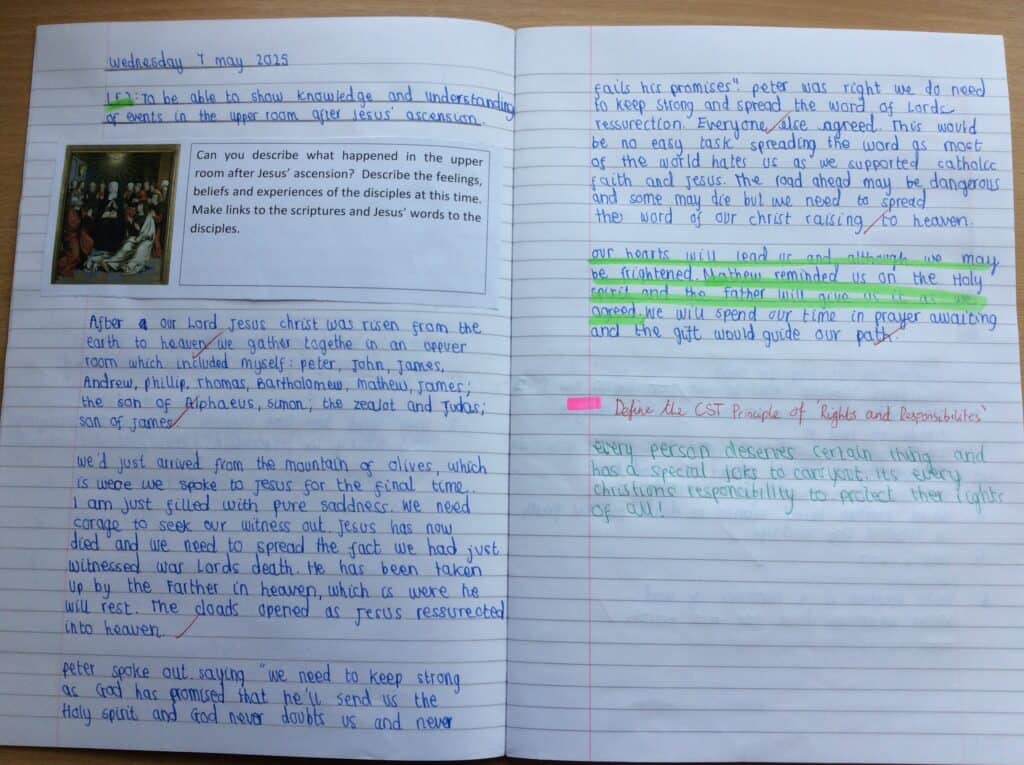 Wednesday 7 may 2025
LF2: To be able to show knowledge and understanding
of events in the upper room after Jesus' ascension.
Can you describe what happened in the upper
room after Jesus' ascension? Describe the feelings,
beliefs and experiences of the disciples at this time.
Make links to the scriptures and Jesus' words to the
disciples.
After a our Lord Jesus christ was risen from the
earth to heaven we gather togethe in an opper
room which included myself: peter, John, James,
Andrew, phillip, Thomas, Bartholomew, mathew, James;
the son of Alphaeus, simon; the zealot and Judas;
son of James
we'd just arrived from the mountain of olives, which
is were we spoke to Jesus for the final time.
I am just filled with pure saddness. We need
corage to seek our witness out. Jesus has now
died and we need to spread the fact we had just
witnessed was Lords death. He has been taken
up by the Farther in heaven, which is were he
will rest. The cloads opened as Jesus ressurected
into heaven.
peter spoke out saying "we need to keep strong
as God has promised that he'll send us the
Holy spirit and God never doubts us and never
fails his promises". peter was right we do need
to keep strong and spread the word of Lords
ressurection. Everyone else agreed. This would
be no easy task spreading the word as most
of the world hates us as we supported catholic
faith and Jesus. The road ahead may be dangerous
and some may die but we need to spread
the word of our christ raising to heaven.
our hearts will lead us and although we may
be frightened. Mathew reminded us on the Holy
spirit and the father will give us it as we
agreed. We will spend our time in prayer awaiting
and the gift would guide our path.
Define the CST Principle of 'Rights and Responsibilites'
every person deserves certain thing and
has a special jobs to carryout. Its every
christian's responsibility to protect ther rights
of all!